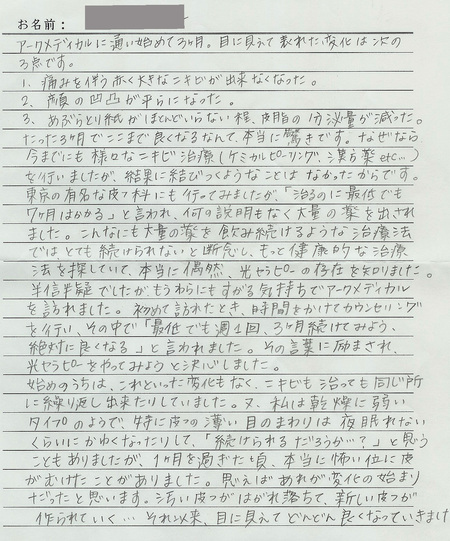 お名前：
アークメディカルに通い始めて3ヶ月。目に見えて表れた変化は次の
3点です。
1、痛みを伴う赤く大きなニキビが出来なくなった。
2、顔の凹凸が平らになった。
3、あぶらとり紙がほとんどいらない程、皮脂の分泌量が減った。
たった3ヶ月でここまで良くなるなんて、本当に驚きです。なぜなら
今までにも様々なニキビ治療(ケミカルピーリング、漢方薬etc…)
を行いましたが、結果に結びつくようなことはなかったからです。
東京の有名な皮フ科にも行ってみましたが、「治るのに最低でも
7ヶ月はかかる」と言われ、何の説明もなく大量の薬を出され
ました。こんなにも大量の薬を飲み続けるような治療法
では、とても続けられないと断念し、もっと健康的な治療
法を探していて、本当に偶然、光セラピーの存在を知りました。
半信半疑でしたが、もうわらにもすがる気持ちでアークメディカル
を訪れました。初めて訪れたとき、時間をかけてカウンセリング
を行い、その中で「最低でも週1回、3ヶ月続けてみよう、
絶対に良くなる」と言われました。その言葉に励まされ、
光セラピーをやってみようと決心しました。
始めのうちは、これといった変化もなく、ニキビも治っても同じ所
に繰り返し出来たりしていました。又、私は乾燥に弱い
タイプのようで、特に皮フの薄い目のまわりは夜眠れない
くらいにかゆくなったりして、「続けられるだろうか…?」と思う
こともありましたが、1ヶ月を過ぎた頃、本当に怖い位に皮
がむけたことがありました。思えばあれが変化の始まり
だったと思います。汚い皮フがはがれ落ちて、新しい皮フが
作られていく…それ以来、目に見えてどんどん良くなっていきまけ